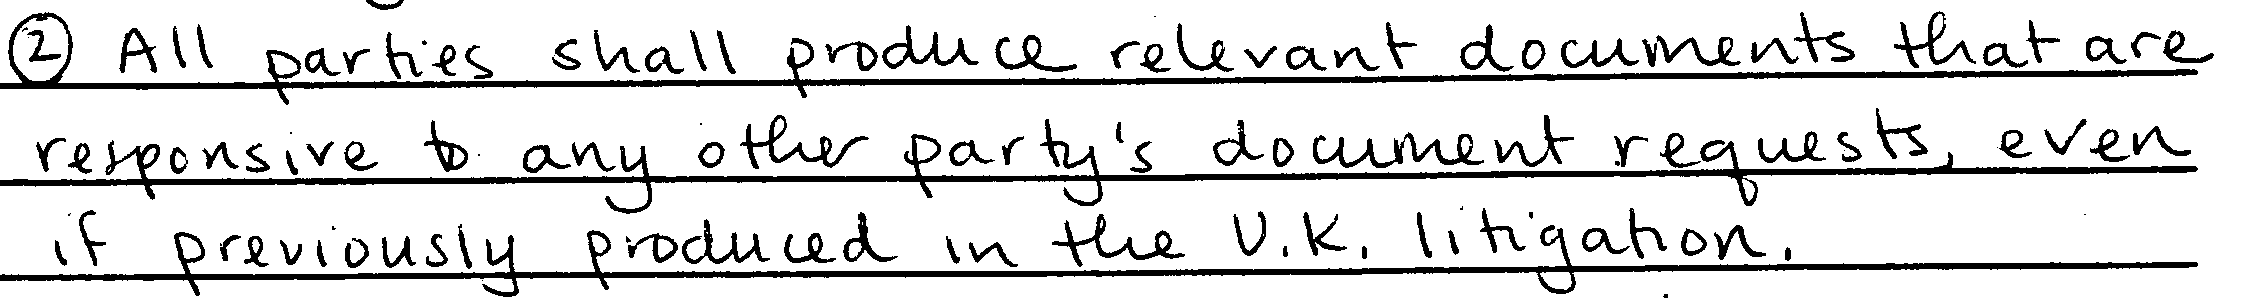 ② All parties shall produce relevant documents that are
responsive to any other party's document requests, even
if previously produced in the U.K. litigation.